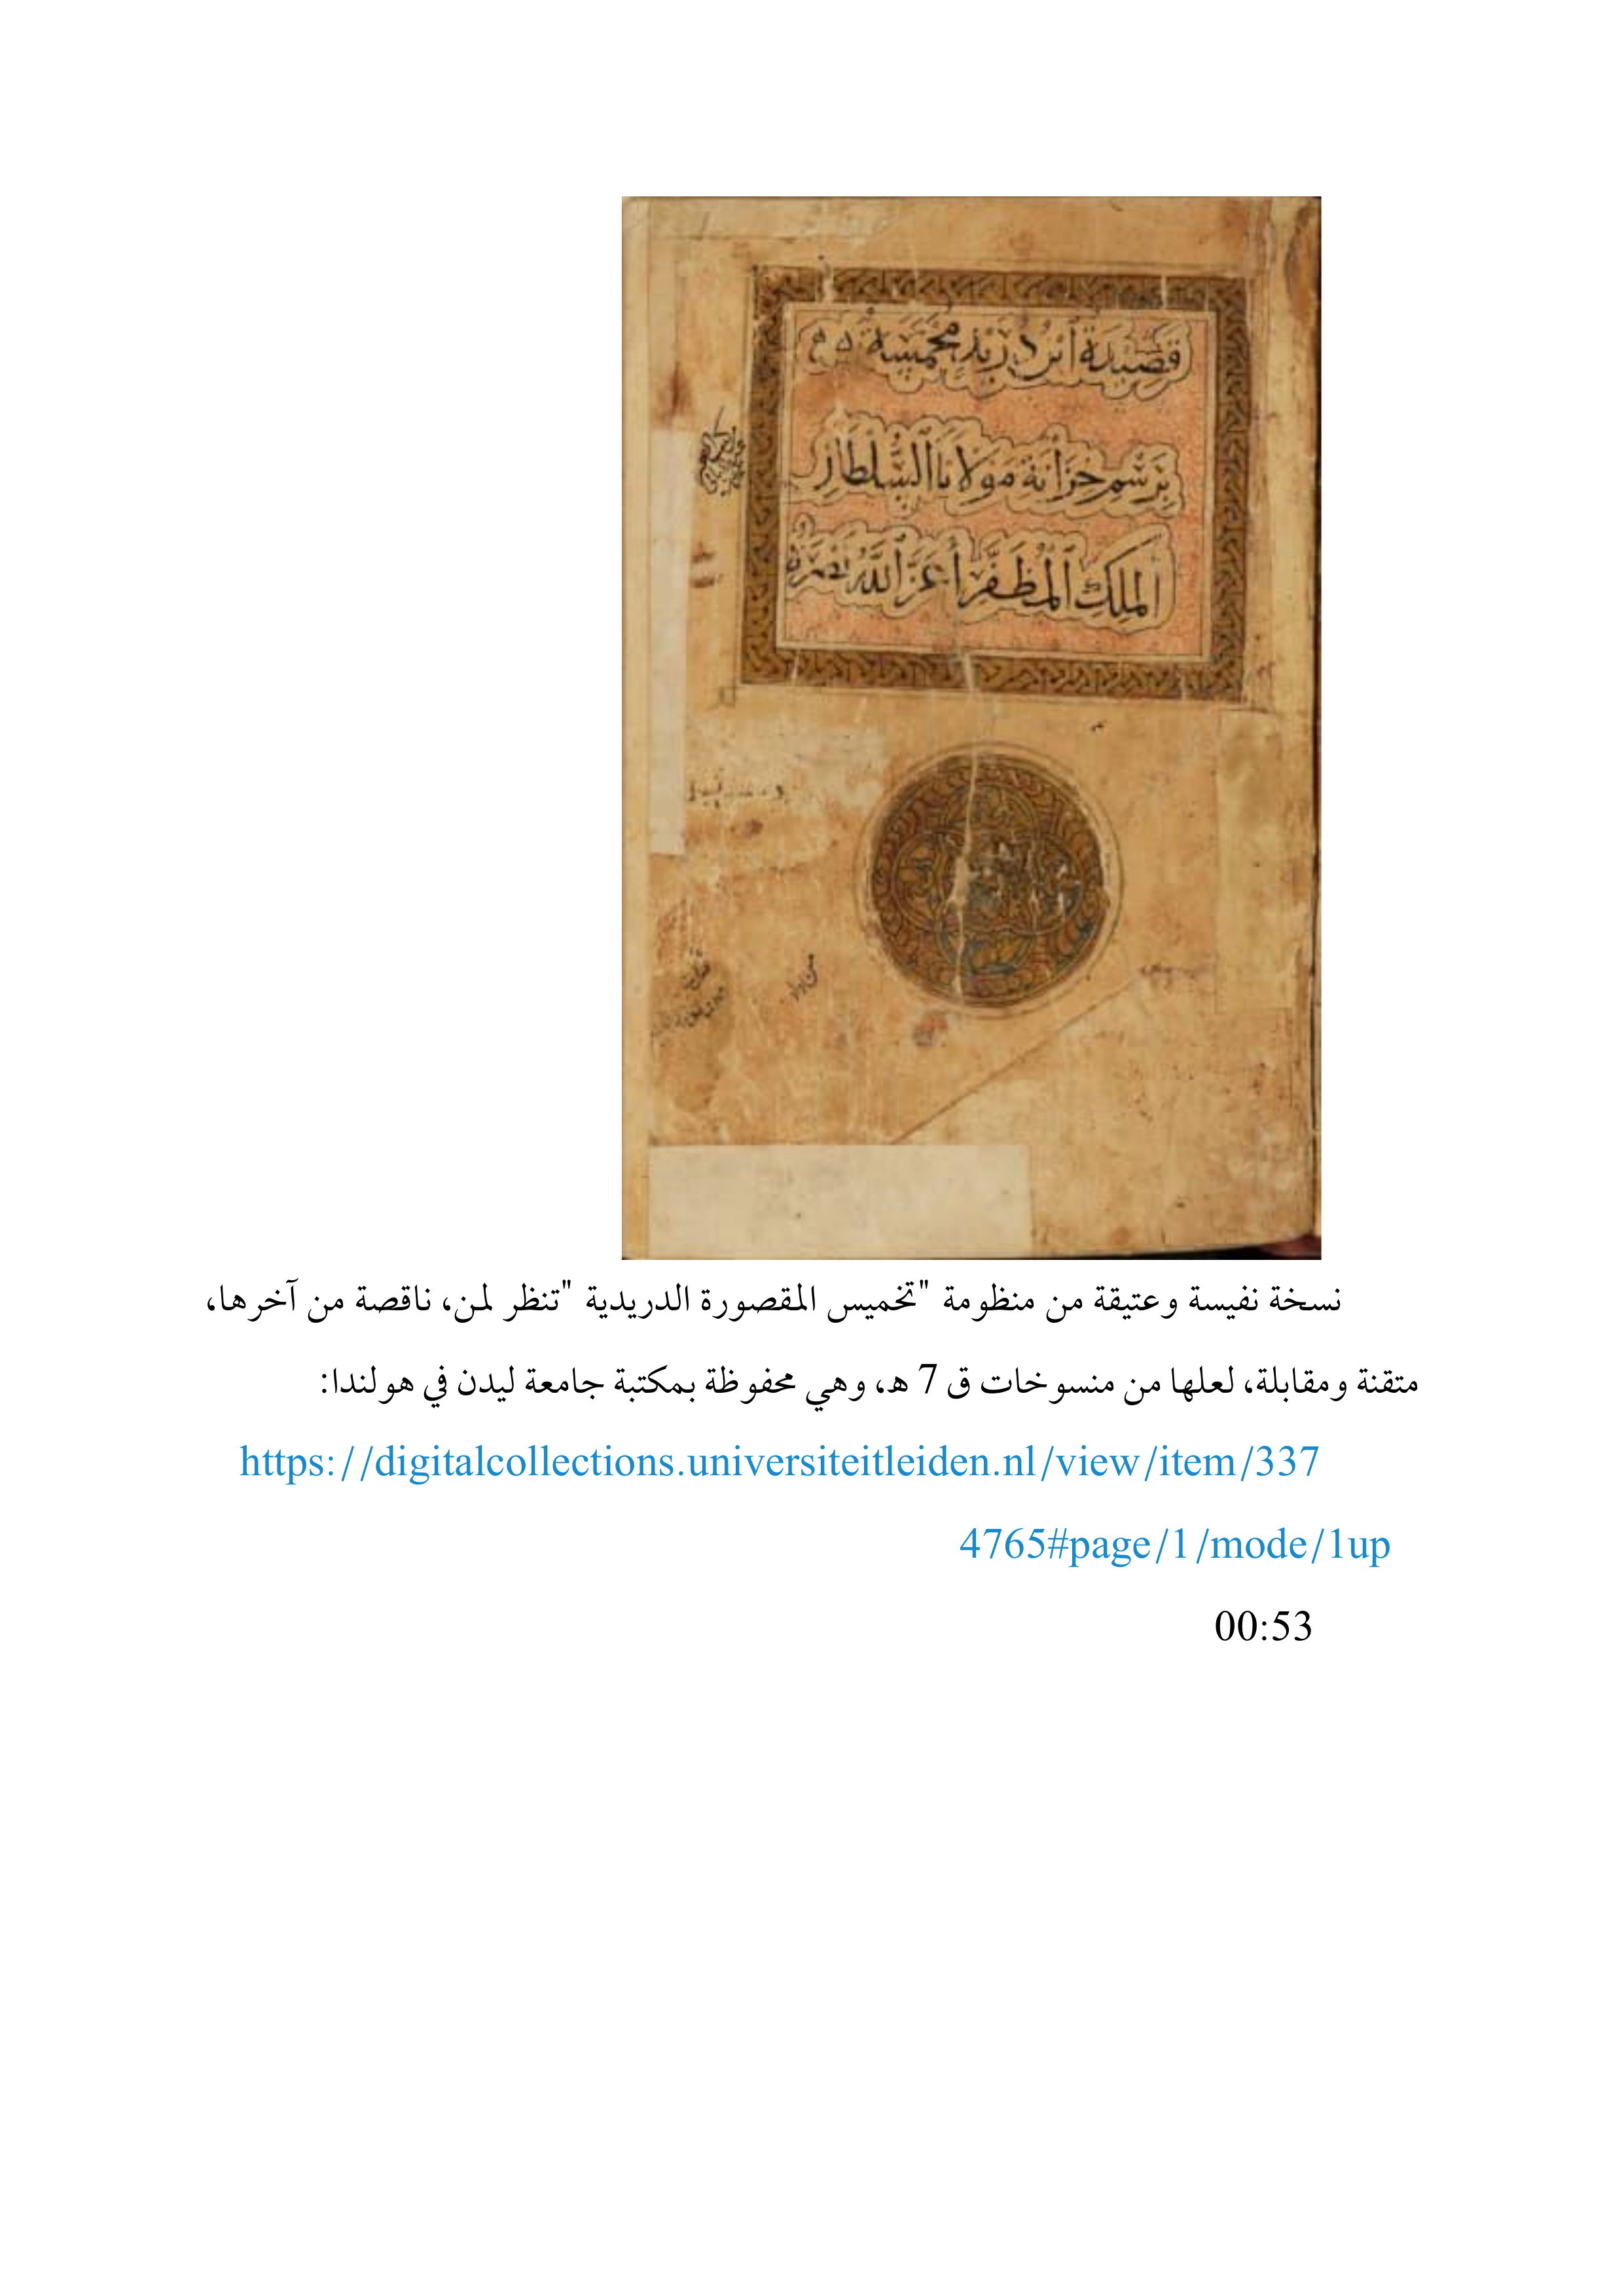 قصيدة ابن دريد مخمسة
برسم خزانة مولانا السلطان
الملك المظفر أعز الله نصره
نسخة نفيسة وعتيقة من منظومة "تخميس المقصورة الدريدية "تنظر لمن، ناقصة من آخرها،
متقنة ومقابلة، لعلها من منسوخات ق 7 هـ، وهي محفوظة بمكتبة جامعة ليدن في هولندا:
https://digitalcollections.universiteitleiden.nl/view/item/337
4765#page/1/mode/1up
00:53